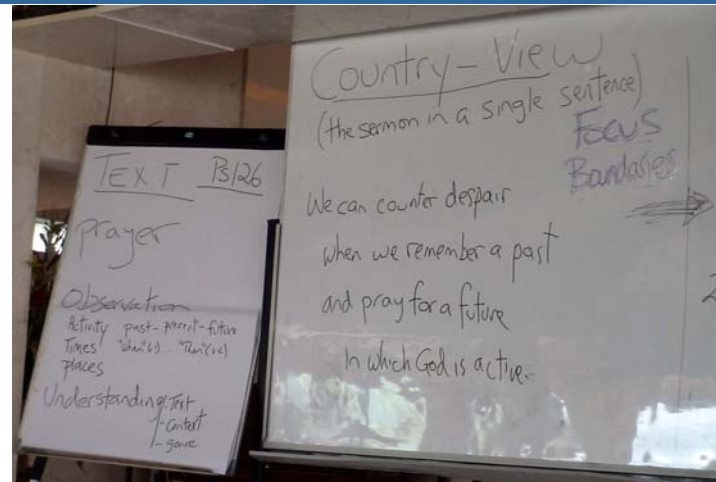 TEXT Ps126
prayer
Observation
Activity past-present-future
Times "when"(v1) ... "Then"(v2)
places
Understanding - Text
- Context
- genre
Country-View
(the sermon in a single sentence)
Focus
Boundaries
We can counter despair
when we remember a past
and pray for a future
in which God is active.
2